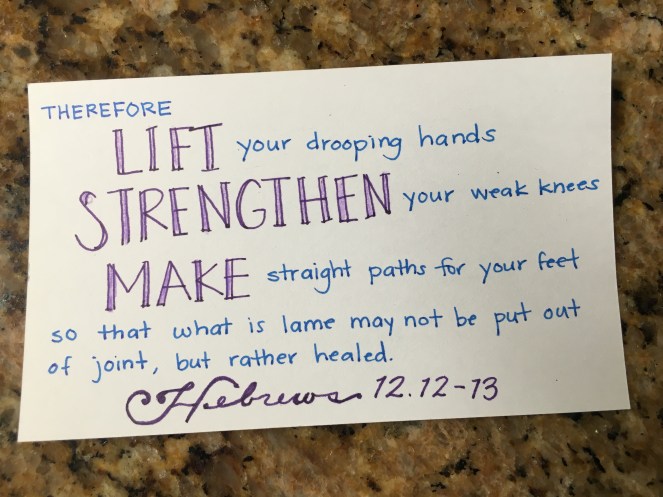 THEREFORE
LIFT your drooping hands
STRENGTHEN your weak knees
MAKE straight paths for your feet
so that what is lame may not be put out
of joint, but rather healed.
Hebrews 12.12-13